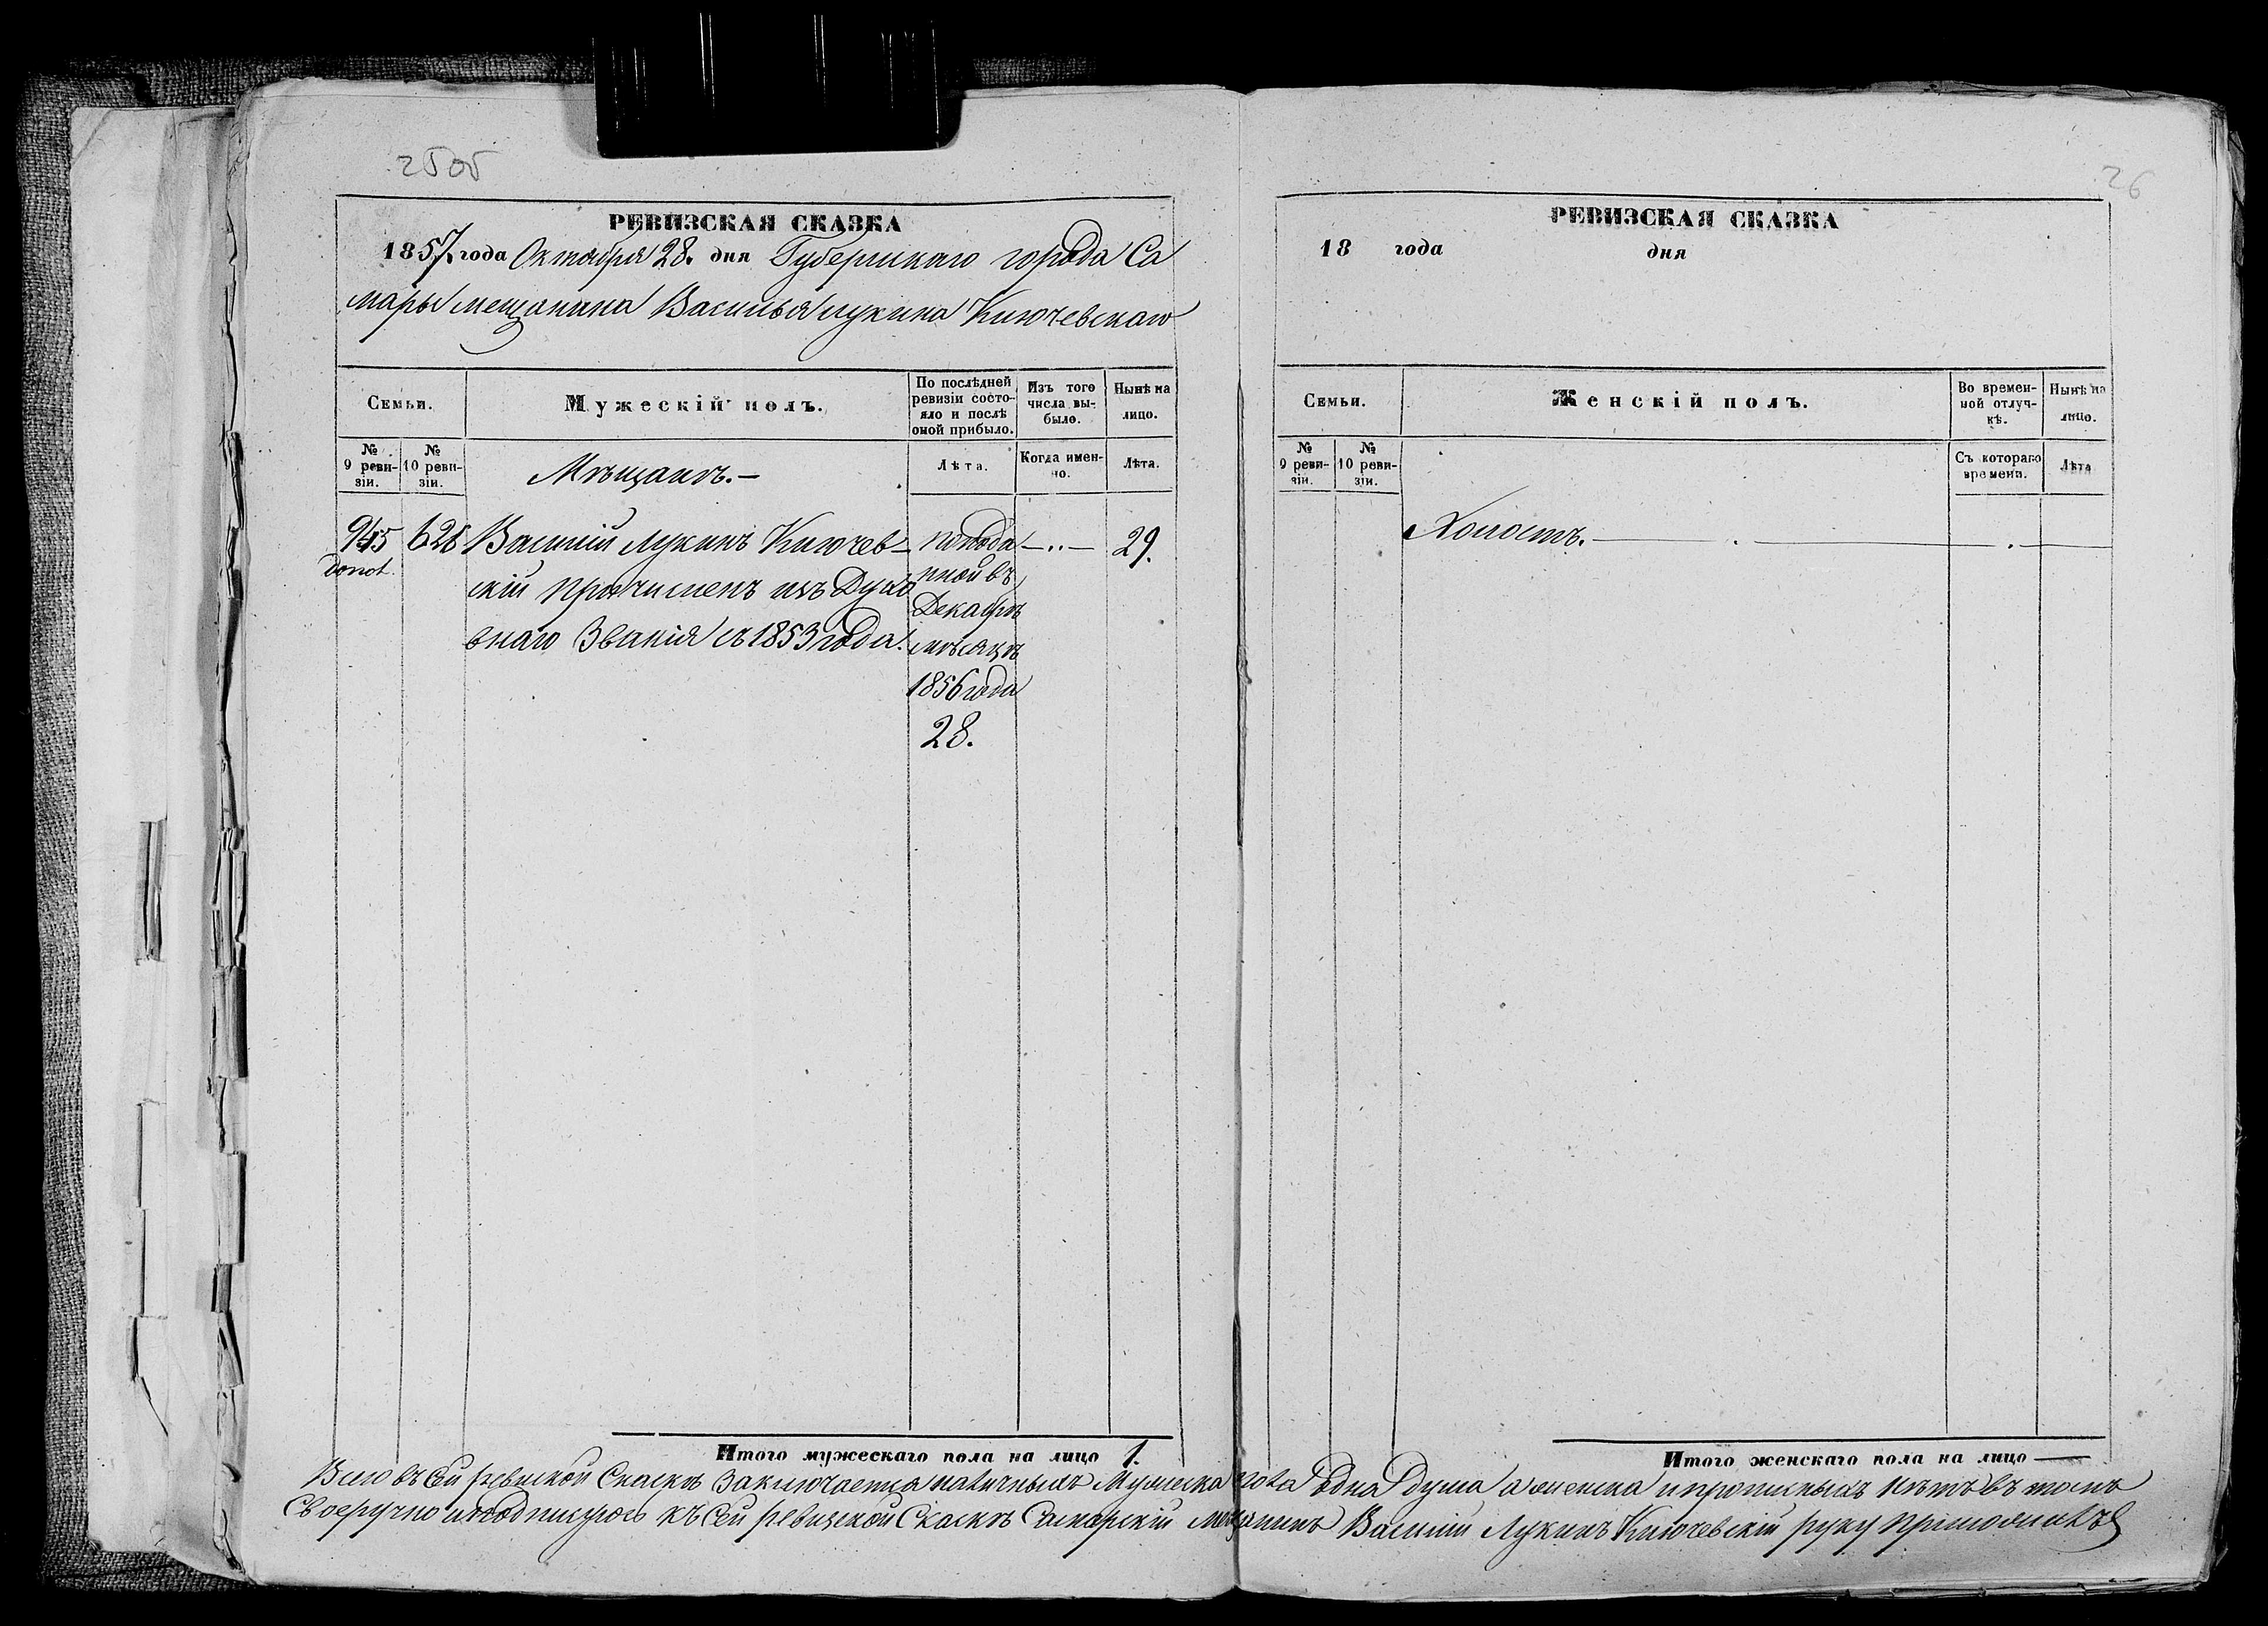 25об
РЕВИЗСКАЯ СКАЗКА
1857. года Октября 28. дня Губернскаго города Са
мары мещанина Василья Лукина Ключевскаго
Семьи.
Мужескій полъ.
По послѣдней ревизіи состо-
яло и послѣ
оной прибыло.
Изъ того
числа вы-
было.
Нынѣ на
лицо.
№
9 реви-
зіи.
№
10 реви-
зіи.
Мѣщанъ.-
Лѣта.
Когда имен-
но.
Лѣта.
945 626 Василій Лукинъ Ключев- — .. — 29.
скій причисленъ изъ Духо
внаго Званія съ 1853 года.
поода
нной въ
Декабрѣ
мѣсяцѣ
1856 года
28.
Итого мужескаго пола на лицо 1.
26
РЕВИЗСКАЯ СКАЗКА
18 года дня
Семьи.
Женскій полъ.
Во времен-
ной отлуч-
кѣ.
Нынѣ на
лицо.
№
9 реви-
зіи.
№
10 реви-
зіи.
Съ котораго
времени.
Лѣта
Холостъ.
Итого женскаго пола на лицо —
Всего въ сей ревиской Сказкѣ Заключается наличныхъ Мужеска пола одна Душа а женска и прописныхъ нѣтъ въ томъ
Своеручно и подписуюсь къ сей ревизской Сказкѣ Самарскій мещанинъ Василій Лукинъ Ключевскій руку приложилъ